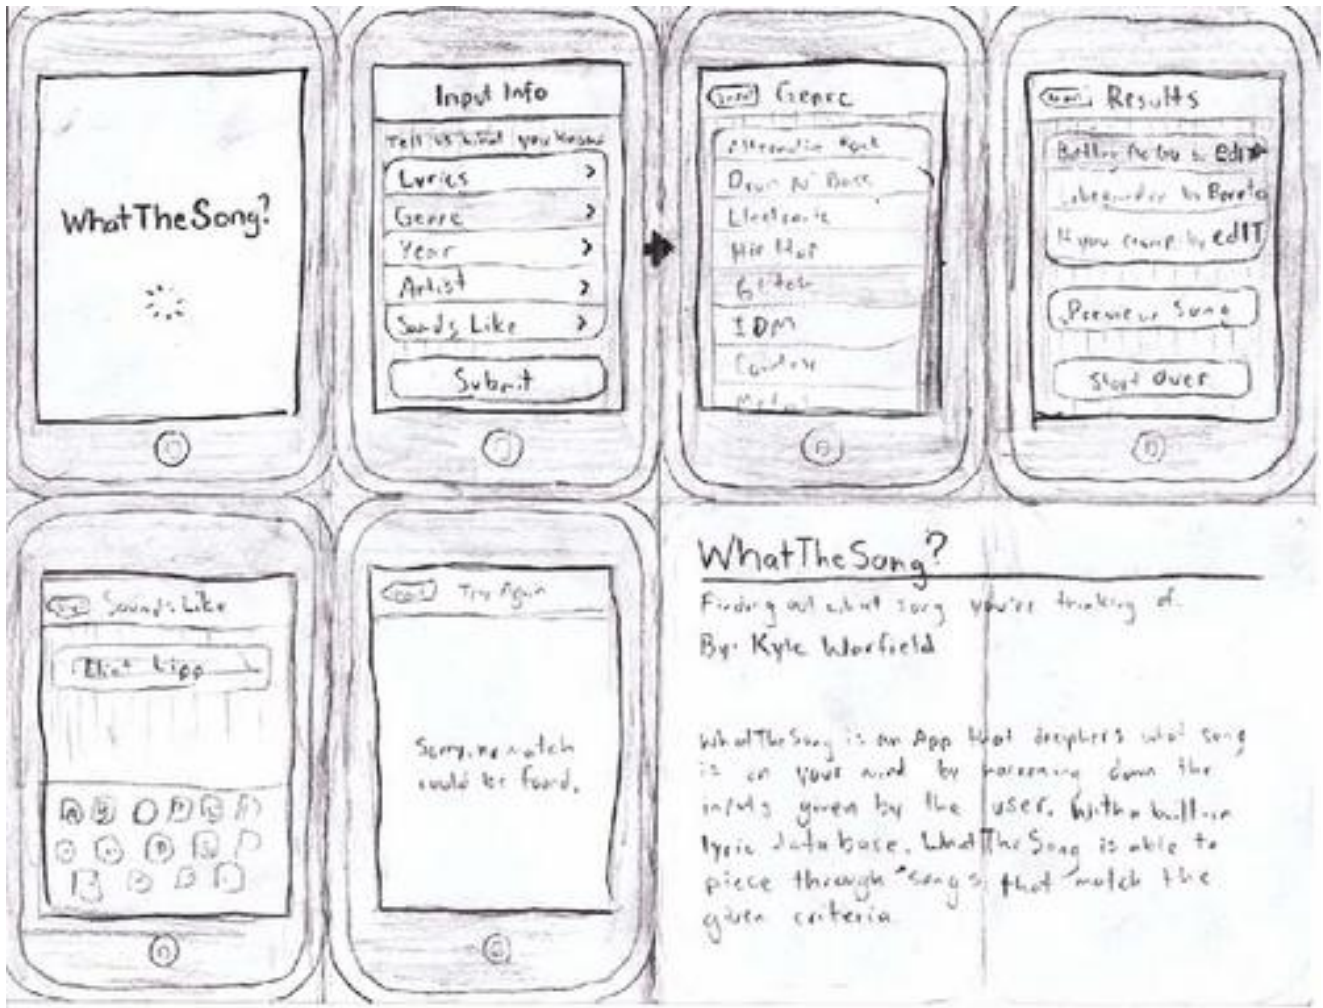 WhatTheSong?
Input Info
Tell us what you know
Lyrics >
Genre >
Year >
Artist >
Sounds Like >
Submit
Genre
Alternative Rock
Drum N' Bass
Electronic
Hip Hop
Glitch
IDM
Metal
Results
by edIT
by Bonobo
If you crump by edIT
Preview Song
Start Over
Sounds Like
Eliot Lipp
Back Try Again
Sorry, no match
could be found.
WhatTheSong?
Finding out what song you're thinking of.
By: Kyle Warfield
WhatTheSong is an App that deciphers what song
is on your mind by narrowing down the
inputs given by the user. With a built-in
lyric database, WhatTheSong is able to
piece through songs that match the
given criteria